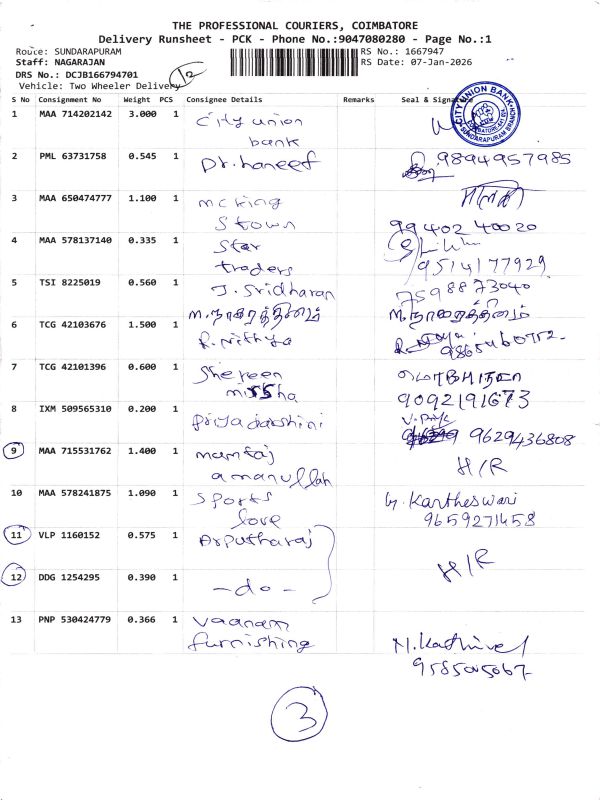 THE PROFESSIONAL COURIERS, COIMBATORE
Delivery Runsheet - PCK - Phone No.:9047080280 - Page No.:1
Route: SUNDARAPURAM RS No.: 1667947
Staff: NAGARAJAN RS Date: 07-Jan-2026
DRS No.: DCJB166794701
Vehicle: Two Wheeler Delivery 12
S No Consignment No Weight PCS Consignee Details Remarks Seal & Signature
CITY UNION BANK
SUNDARAPURAM BRANCH
1 MAA 714202142 3.000 1 City union
bank
2 PML 63731758 0.545 1 Dr.haneef 9894957985
3 MAA 650474777 1.100 1 mc king
Stown 99402 40020
4 MAA 578137140 0.335 1 Star
traders 9514177929
5 TSI 8225019 0.560 1 J. Sridharan 7598873040
6 TCG 42103676 1.500 1 R. Nithya
7 TCG 42101396 0.600 1 Shereen
missha 9092191673
8 IXM 509565310 0.200 1 Priyadarshini 9629436808
9 MAA 715531762 1.400 1 mamtaj H/R
amanullah
10 MAA 578241875 1.090 1 Sports by. Kartheswari
love 9659271458
11 VLP 1160152 0.575 1 Arputharaj
H/R
12 DDG 1254295 0.390 1 -do-
13 PNP 530424779 0.366 1 Vaanam
furnishing N.Kathivel
3